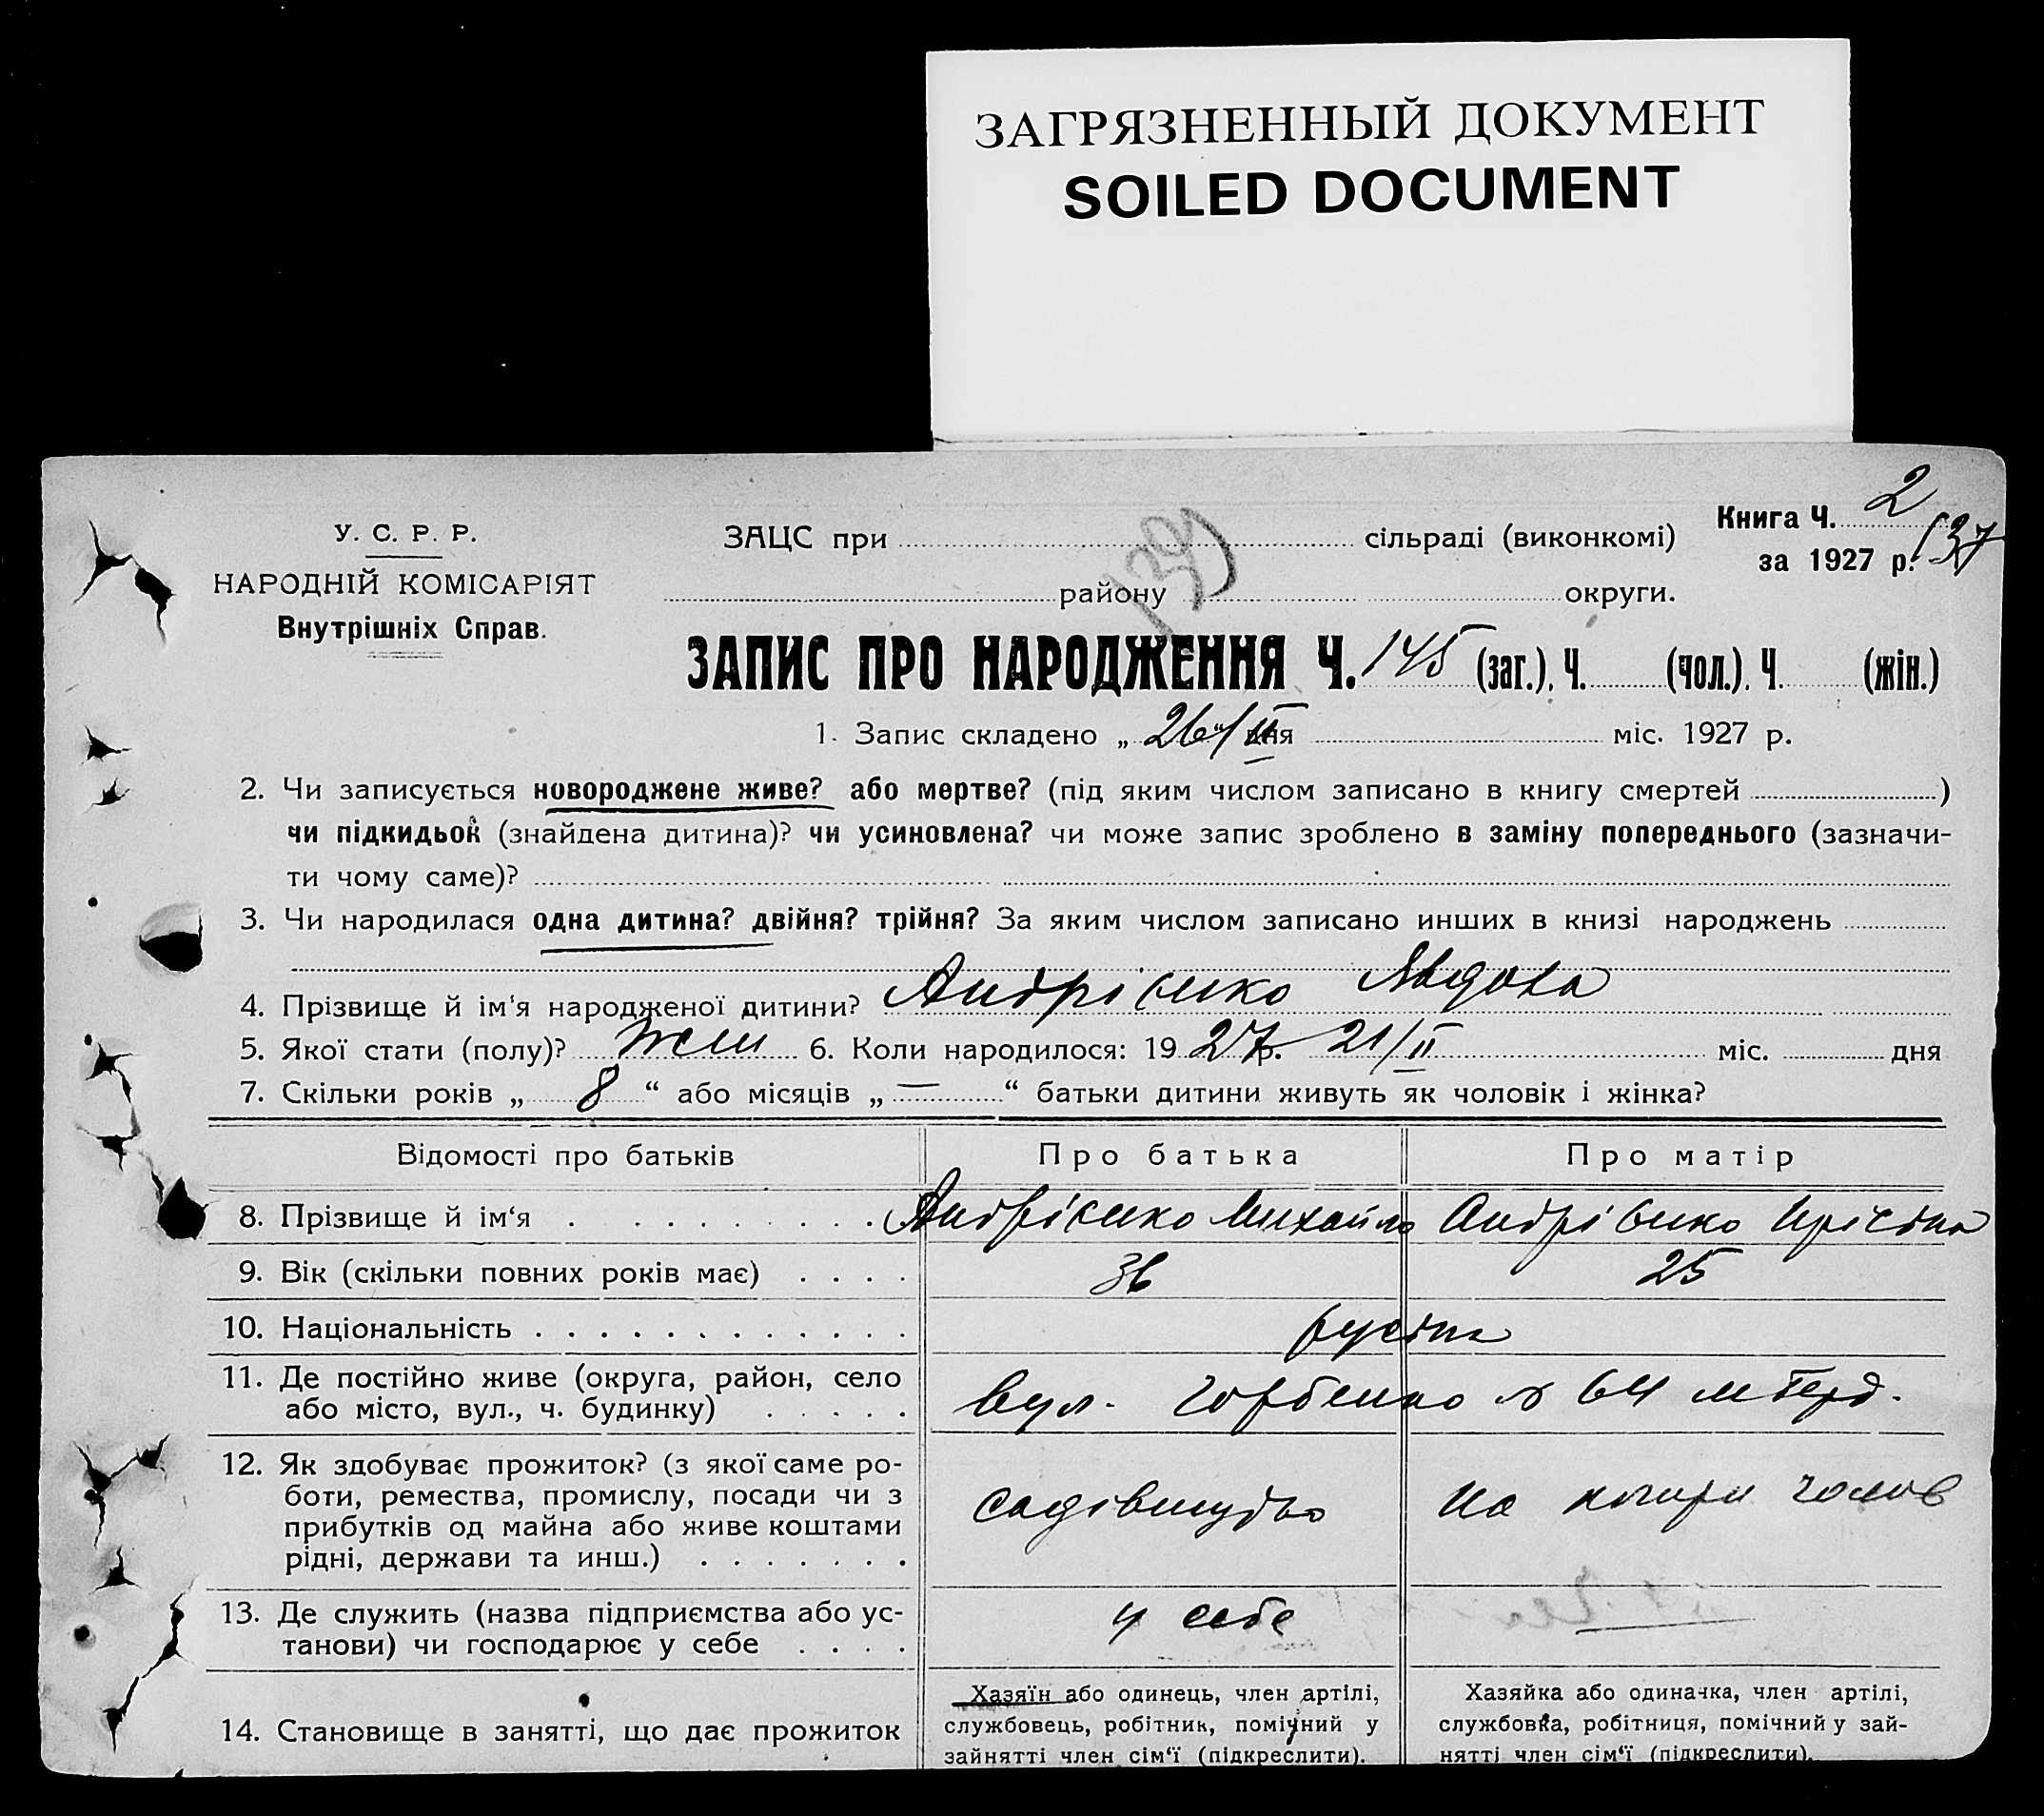 ЗАГРЯЗНЕННЫЙ ДОКУМЕНТ
SOILED DOCUMENT
У. С. Р. Р.
НАРОДНІЙ КОМІСАРІЯТ
Внутрішніх Справ.
ЗАЦС при сільраді (виконкомі)
району округи.
139
Книга Ч. 2
за 1927 р. 137
ЗАПИС ПРО НАРОДЖЕННЯ Ч. 145 (заг.), Ч. (чол.), Ч. (жін.)
1. Запис складено „ 26/II дня міс. 1927 р.
2. Чи записується новороджене живе? або мертве? (під яким числом записано в книгу смертей )
чи підкидьок (знайдена дитина)? чи усиновлена? чи може запис зроблено в заміну попереднього (зазначи-
ти чому саме)?
3. Чи народилася одна дитина? двійня? трійня? За яким числом записано инших в книзі народжень
4. Прізвище й ім'я народженої дитини? Андрієнко Явдоха
5. Якої стати (полу)? жін 6. Коли народилося: 1927 р. 21/II міс. дня
7. Скільки років „ 8 “ або місяців „ — “ батьки дитини живуть як чоловік і жінка?
Відомості про батьків Про батька Про матір
8. Прізвище й ім'я Андрієнко Михайло Андрієнко Христина
9. Вік (скільки повних років має) 36 25
10. Національність
11. Де постійно живе (округа, район, село
або місто, вул., ч. будинку)
вул. Горбенко № 64 м Берд.
12. Як здобуває прожиток? (з якої саме ро-
боти, ремества, промислу, посади чи з
прибутків од майна або живе коштами
рідні, держави та инш.)
садівництво на кошти чолов
13. Де служить (назва підприємства або ус-
танови) чи господарює у себе
у себе —
14. Становище в занятті, що дає прожиток
Хазяїн або одинець, член артілі,
службовець, робітник, помічний у
зайнятті член сім'ї (підкреслити).
Хазяйка або одиначка, член артілі,
службовка, робітниця, помічний у зай-
нятті член сім'ї (підкреслити).